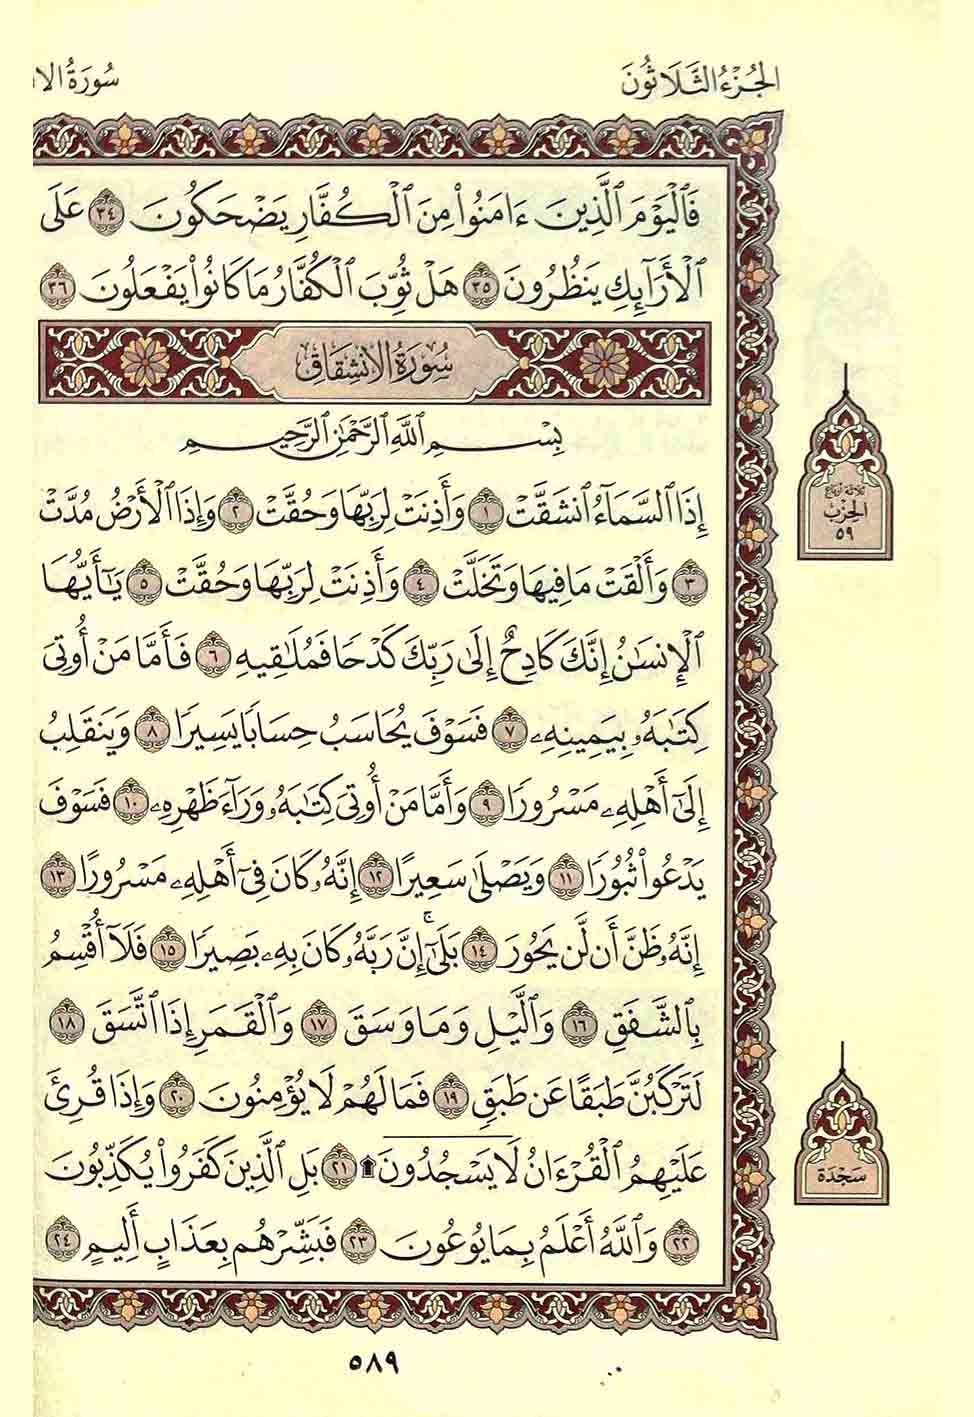 الجُزْءُ الثَّلَاثُونَ
سُورَةُ الا
فَٱلۡيَوۡمَ ٱلَّذِينَ ءَامَنُواْ مِنَ ٱلۡكُفَّارِ يَضۡحَكُونَ ٣٤ عَلَى
ٱلۡأَرَآئِكِ يَنظُرُونَ ٣٥ هَلۡ ثُوِّبَ ٱلۡكُفَّارُ مَا كَانُواْ يَفۡعَلُونَ ٣٦
سُورَةُ الانشِقَاقِ
بِسۡمِ ٱللَّهِ ٱلرَّحۡمَٰنِ ٱلرَّحِيمِ
إِذَا ٱلسَّمَآءُ ٱنشَقَّتۡ ١ وَأَذِنَتۡ لِرَبِّهَا وَحُقَّتۡ ٢ وَإِذَا ٱلۡأَرۡضُ مُدَّتۡ
٣ وَأَلۡقَتۡ مَا فِيهَا وَتَخَلَّتۡ ٤ وَأَذِنَتۡ لِرَبِّهَا وَحُقَّتۡ ٥ يَٰٓأَيُّهَا
ٱلۡإِنسَٰنُ إِنَّكَ كَادِحٌ إِلَىٰ رَبِّكَ كَدۡحٗا فَمُلَٰقِيهِ ٦ فَأَمَّا مَنۡ أُوتِيَ
كِتَٰبَهُۥ بِيَمِينِهِۦ ٧ فَسَوۡفَ يُحَاسَبُ حِسَابٗا يَسِيرٗا ٨ وَيَنقَلِبُ
إِلَىٰٓ أَهۡلِهِۦ مَسۡرُورٗا ٩ وَأَمَّا مَنۡ أُوتِيَ كِتَٰبَهُۥ وَرَآءَ ظَهۡرِهِۦ ١٠ فَسَوۡفَ
يَدۡعُواْ ثُبُورٗا ١١ وَيَصۡلَىٰ سَعِيرًا ١٢ إِنَّهُۥ كَانَ فِيٓ أَهۡلِهِۦ مَسۡرُورًا ١٣
إِنَّهُۥ ظَنَّ أَن لَّن يَحُورَ ١٤ بَلَىٰٓۚ إِنَّ رَبَّهُۥ كَانَ بِهِۦ بَصِيرٗا ١٥ فَلَآ أُقۡسِمُ
بِٱلشَّفَقِ ١٦ وَٱلَّيۡلِ وَمَا وَسَقَ ١٧ وَٱلۡقَمَرِ إِذَا ٱتَّسَقَ ١٨
لَتَرۡكَبُنَّ طَبَقًا عَن طَبَقٖ ١٩ فَمَا لَهُمۡ لَا يُؤۡمِنُونَ ٢٠ وَإِذَا قُرِئَ
عَلَيۡهِمُ ٱلۡقُرۡءَانُ لَا يَسۡجُدُونَۤ۩ ٢١ بَلِ ٱلَّذِينَ كَفَرُواْ يُكَذِّبُونَ
٢٢ وَٱللَّهُ أَعۡلَمُ بِمَا يُوعُونَ ٢٣ فَبَشِّرۡهُم بِعَذَابٍ أَلِيمٍ ٢٤
ثلاثة أرباع
الحِزْب
٥٩
سَجْدَة
٥٨٩